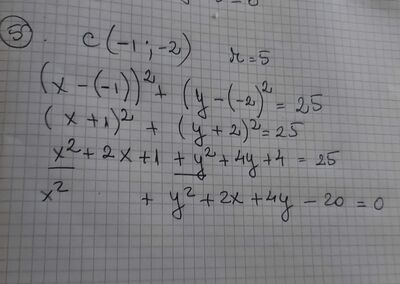 5. C (-1 ; -2) r = 5
(x - (-1))² + (y - (-2)² = 25
(x + 1)² + (y + 2)² = 25
x² + 2x + 1 + y² + 4y + 4 = 25
x² + y² + 2x + 4y - 20 = 0